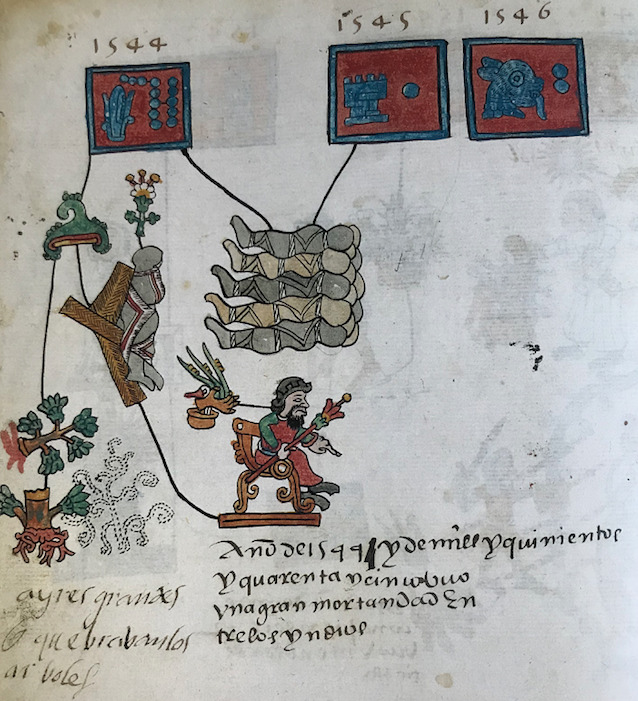 1544
1545
1546
Año de 1544 y de mill y quinientos
y quarenta y cinco ubuo
una gran mortandad En
tre los yndios
ayres grandes
que quebrabanlos
arboles